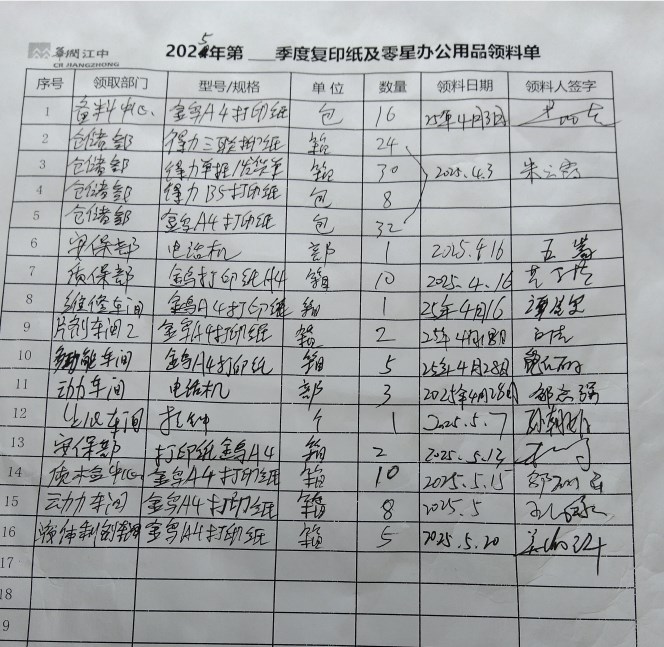 華潤江中
CR JIANGZHONG
2025年第 季度复印纸及零星办公用品领料单
序号 领取部门 型号/规格 单位 数量 领料日期 领料人签字
1 备料中心 金鸟A4打印纸 包 16 25年4月3日
2 仓储部 得力三联打印纸 箱 24
3 仓储部 得力单据/发货单 箱 30 2025.4.3 朱云霞
4 仓储部 得力B5打印纸 包 8
5 仓储部 金鸟A4打印纸 包 32
6 安保部 电话机 部 1 2025.4.16
7 质保部 金鸟打印纸A4 箱 10 2025.4.16
8 维修车间 金鸟A4打印纸 箱 1 25年4月16
9 片剂车间2 金鸟A4打印纸 箱 2 25年4月18日
10 多功能车间 金鸟A4打印纸 箱 5 25年4月28日
11 动力车间 电话机 部 3 2025年4月28日 邹志强
12 车间 个 1 2025.5.7
13 安保部 打印纸金鸟A4 箱 2 2025.5.13
14 质检中心 金鸟A4打印纸 箱 10 2025.5.15
15 动力车间 金鸟A4打印纸 箱 8 2025.5
16 液体制剂车间 金鸟A4打印纸 箱 5 2025.5.20
17
18
9